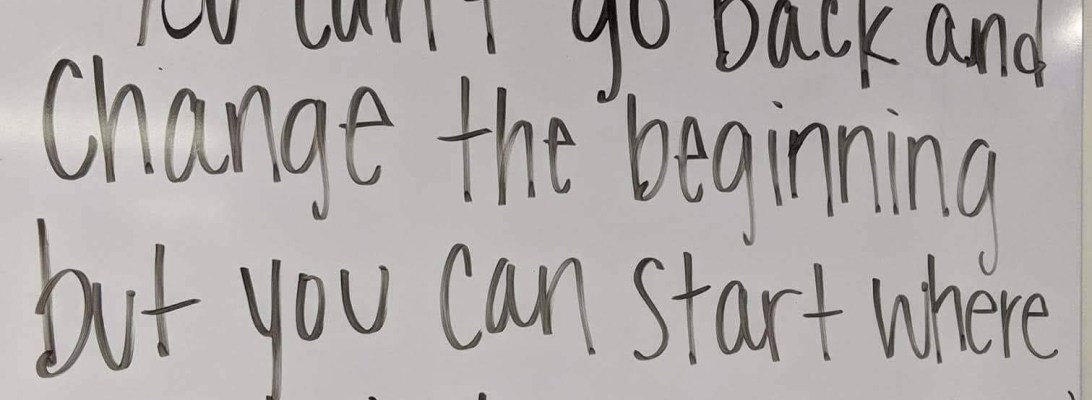 You can't go back and
Change the beginning
but you can start where